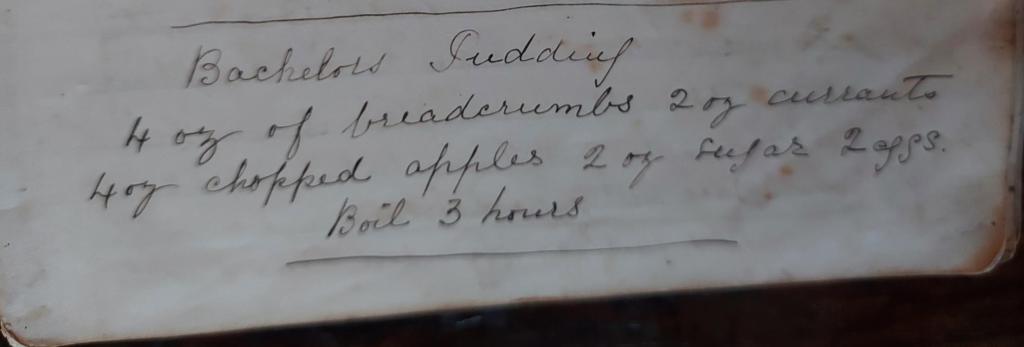 Bachelors Pudding
4 oz of breadcrumbs 2 oz currants
4 oz chopped apples 2 oz sugar 2 eggs.
Boil 3 hours